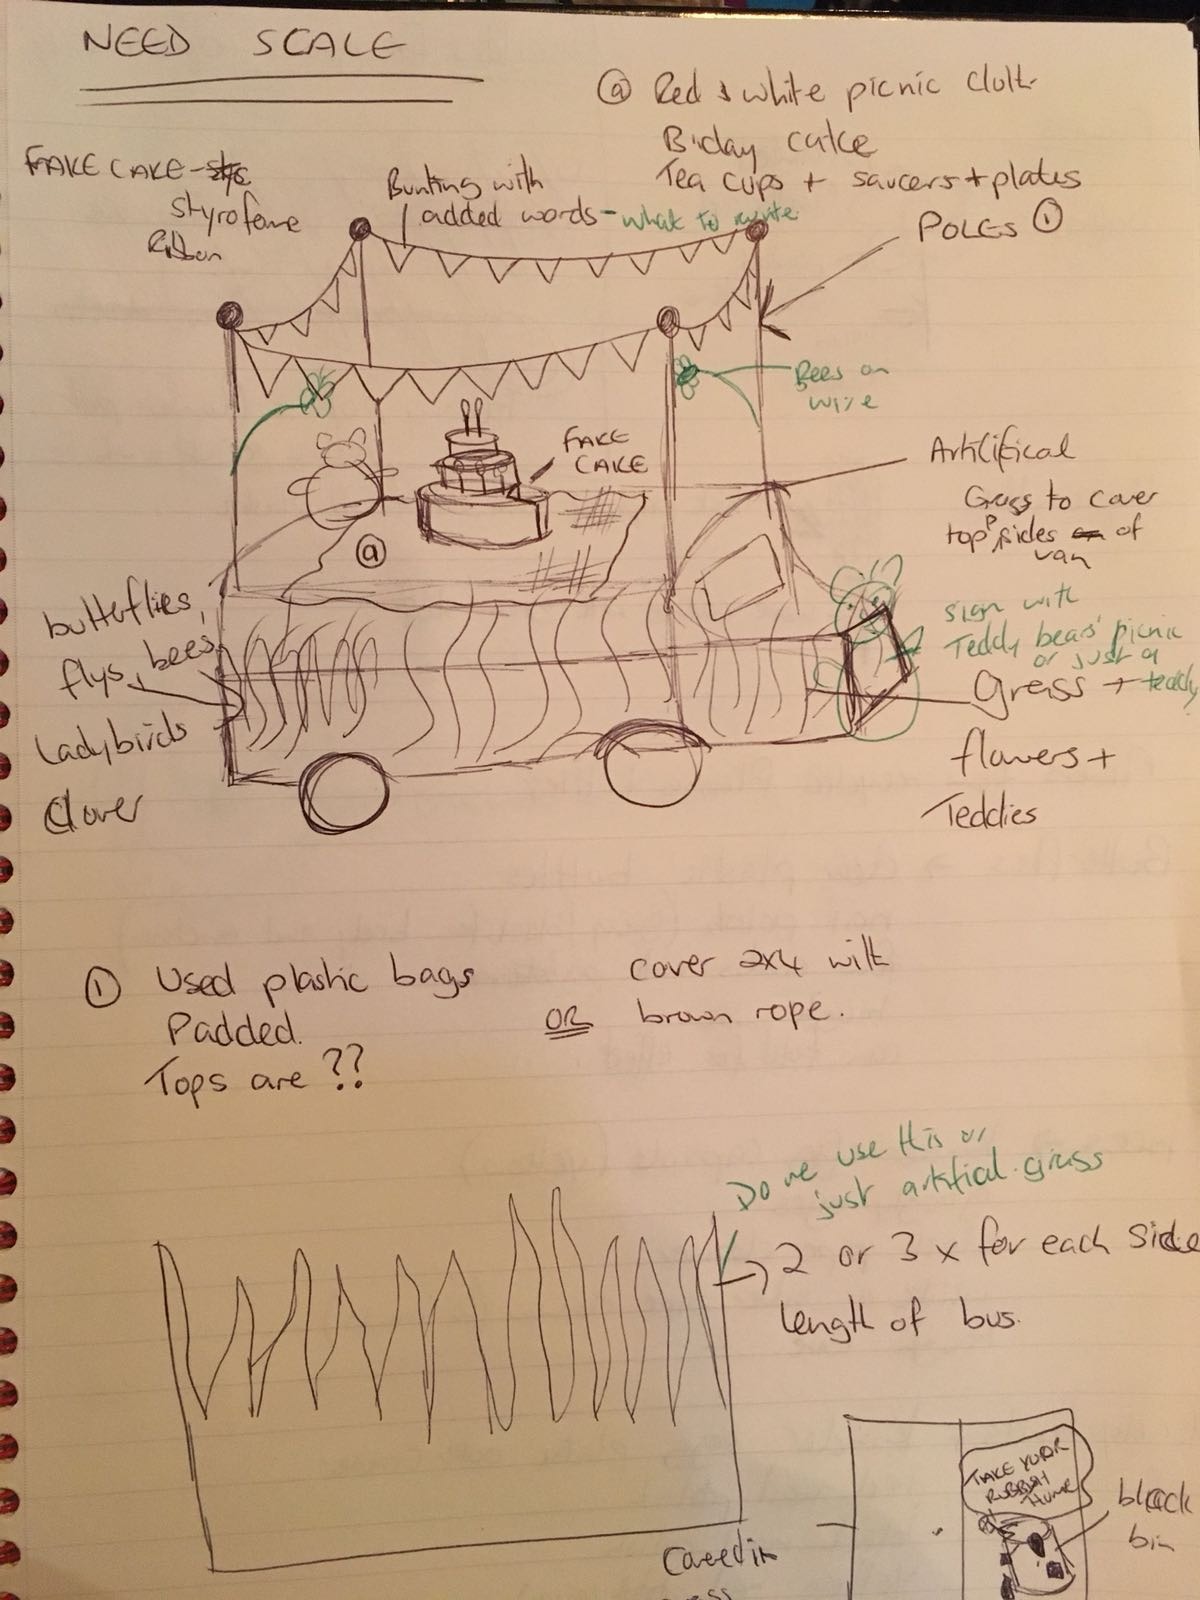 NEED SCALE
@ Red & white picnic cloth
B·day cake
Tea cups + saucers + plates
FAKE CAKE -
styrofome
Ribbon
Bunting with
added words - what to write
POLES ①
Bees on
wire
FAKE
CAKE
Artilifical
Grass to cover
top, sides of
van
@
butterflies,
flys, bees,
Ladybirds
Clover
Sign with
Teddy bears' picnic
or just a
teddy
Grass +
flowers +
Teddies
① Used plastic bags
Padded.
Tops are ??
OR
cover 2x4 with
brown rope.
Do we use this or
just artifical grass
2 or 3 x for each side
length of bus.
TAKE YOUR
RUBBISH
HOME
black
bin